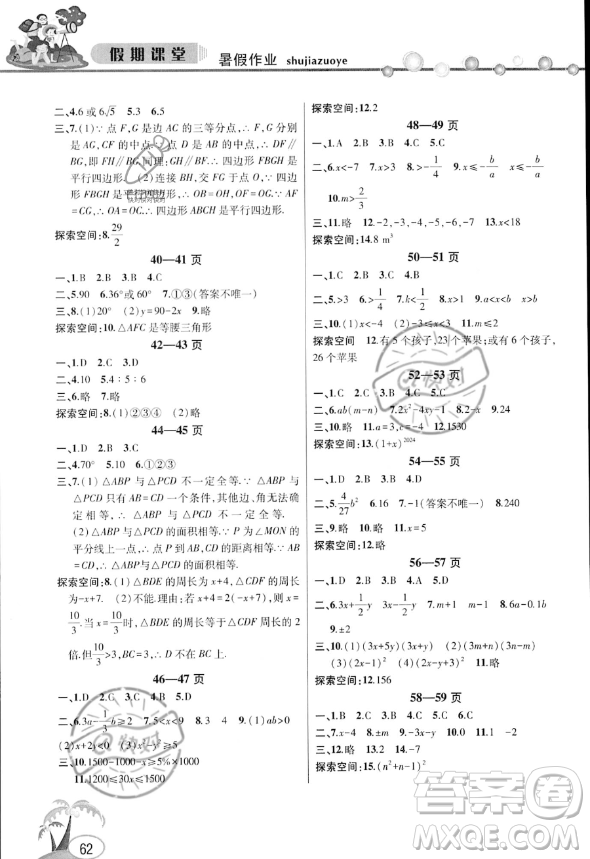 假期课堂 暑假作业 shujiazuoye
二、4.6或6√5 5.3 6.5
三、7.(1)∵点F,G是边AC的三等分点,∴F,G分别
是AG,CF的中点,∵点D是AB的中点,∴DF∥
BG,即FH∥BG.同理:GH∥BF,∴四边形FBGH是
平行四边形. (2)连接BH,交FG于点O,∵四边
形FBGH是平行四边形,∴OB=OH,OF=OG,∵AF=
CG,∴OA=OC.∴四边形ABCH是平行四边形.
探索空间:8.29/2
40—41页
一、1.B 2.B 3.A 4.D
二、5.90 6.36°或60° 7.①③(答案不唯一)
三、8.(1)x=120 (2)y=90-x 9.略
探索空间:10.△AFC是等腰三角形
42—43页
一、1.D 2.D 3.C
二、4.10 5.4:5:6
三、6.略 7.略
探索空间:(1)②③④ (2)略
44—45页
一、1.D 2.B 3.D
二、4.70° 5.10 6.①②③④
三、7.(1)△ABP与△PCD不一定全等.∵△ABP与
△PCD只有AB=CD一个条件,其他量无法确
定相等,∴△ABP与△PCD不一定全等.
(2)△ABP与△PCD的面积相等.∵P为∠MON的
平分线上一点,∴点P到AB,CD的距离相等.∵
AB=CD,∴△ABP与△PCD的面积相等.
探索空间:8.(1)△BDE的周长为x+4,△CDF的周长
为-x+7. (2)不能.理由:若x+4=2(-x+7),则x=
10/3.∴当x=10/3时,△BDE的周长等于△CDF周长的2
倍.但10/3>3,BC=3,∴点D不在BC上,∴不能.
46—47页
一、1.A 2.D 3.D 4.B 5.D
二、6.> 7.0 8.3a-1/3b≥2 7.5<x<9 9.(1)ab>0
(2)x+2<0 (3)1/2x-5≤0
三、10.1500-1000-x≥5%×1000
11.1200≤30x≤1500
62
探索空间:12.2
48—49页
一、1.A 2.B 3.C 4.B 5.D
二、6.x<-2 7.> 8.>-1/4 9.x≤-b/a x≥-b/a
10.m>2/3
三、11.略 12.-4,-5,-6,-7 13.x<18
探索空间:14.8 m³
50—51页
一、1.A 2.D 3.C 4.B
二、5.>3 6.>1/4 7.k<1/2 8.a≤2
三、9.(1)x<-4 (2)-2≤x<6 10.-1 11.略
探索空间 12.有5个孩子,23个苹果;或有6个孩子,
26个苹果
52—53页
一、1.C 2.C 3.A 4.D 5.D
二、6.ab(m-n) 7.2x²-4xy-1 8.2x-y 9.24
三、10.略 11.a=3,c=-4 12.1530
探索空间:(1+x)²⁰²⁴
54—55页
一、1.D 2.A 3.D 4.A
二、5.4/27b² 6.16 7.-1(答案不唯一) 8.240
三、9.略 10.略 11.x=5
探索空间:12.略
56—57页
一、1.D 2.B 3.C 4.B 5.D
二、6.3x+1/2y 3x-1/2y 7.4 8.(a-0.1b)²
9.±2
三、10.(1)(3x+5y)(3x-5y) (2)(2x+y)(2x-y)
(3)(2x-1)² (4)(2x-1/2)² 11.略
探索空间:12.156
58—59页
一、1.B 2.C 3.B 4.A 5.A 6.B
二、7.x-4 8.±m 9.-2 10.-4 11.-8
三、12.略 13.略 14.-7
探索空间:15.(n²+n-1)(n²+n+1)
答案圈
MXQE.COM